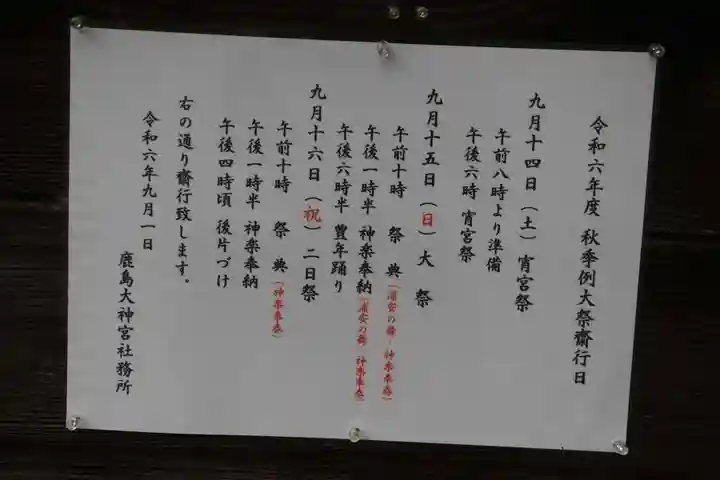 令和六年度　秋季例大祭齋行日
九月十四日（土）宵宮祭
午前八時より準備
午後六時　宵宮祭
九月十五日（日）大　祭
午前十時　祭　典（浦安の舞・神楽奉奏）
午後一時半　神楽奉納（浦安の舞　神楽奉奏）
午後六時半　豊年踊り
九月十六日（祝）二日祭
午前十時　祭　典（神楽奉奏）
午後一時半　神楽奉納
午後四時頃　後片づけ
右の通り齋行致します。
令和六年九月一日
鹿島大神宮社務所